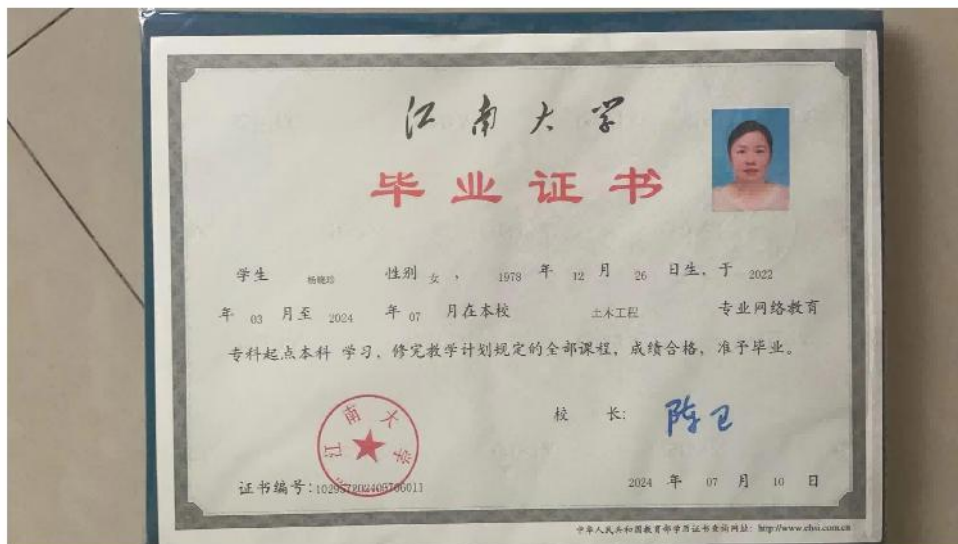 江南大学
毕业证书
学生 杨晓玲 性别 女 ， 1978 年 12 月 26 日生，于 2022
年 03 月至 2024 年 07 月在本校 土木工程 专业网络教育
专科起点本科 学习，修完教学计划规定的全部课程，成绩合格，准予毕业。
江南大学
校 长：陈卫
证书编号：
2024 年 07 月 10 日
中华人民共和国教育部学历证书查询网址：http://www.chsi.com.cn